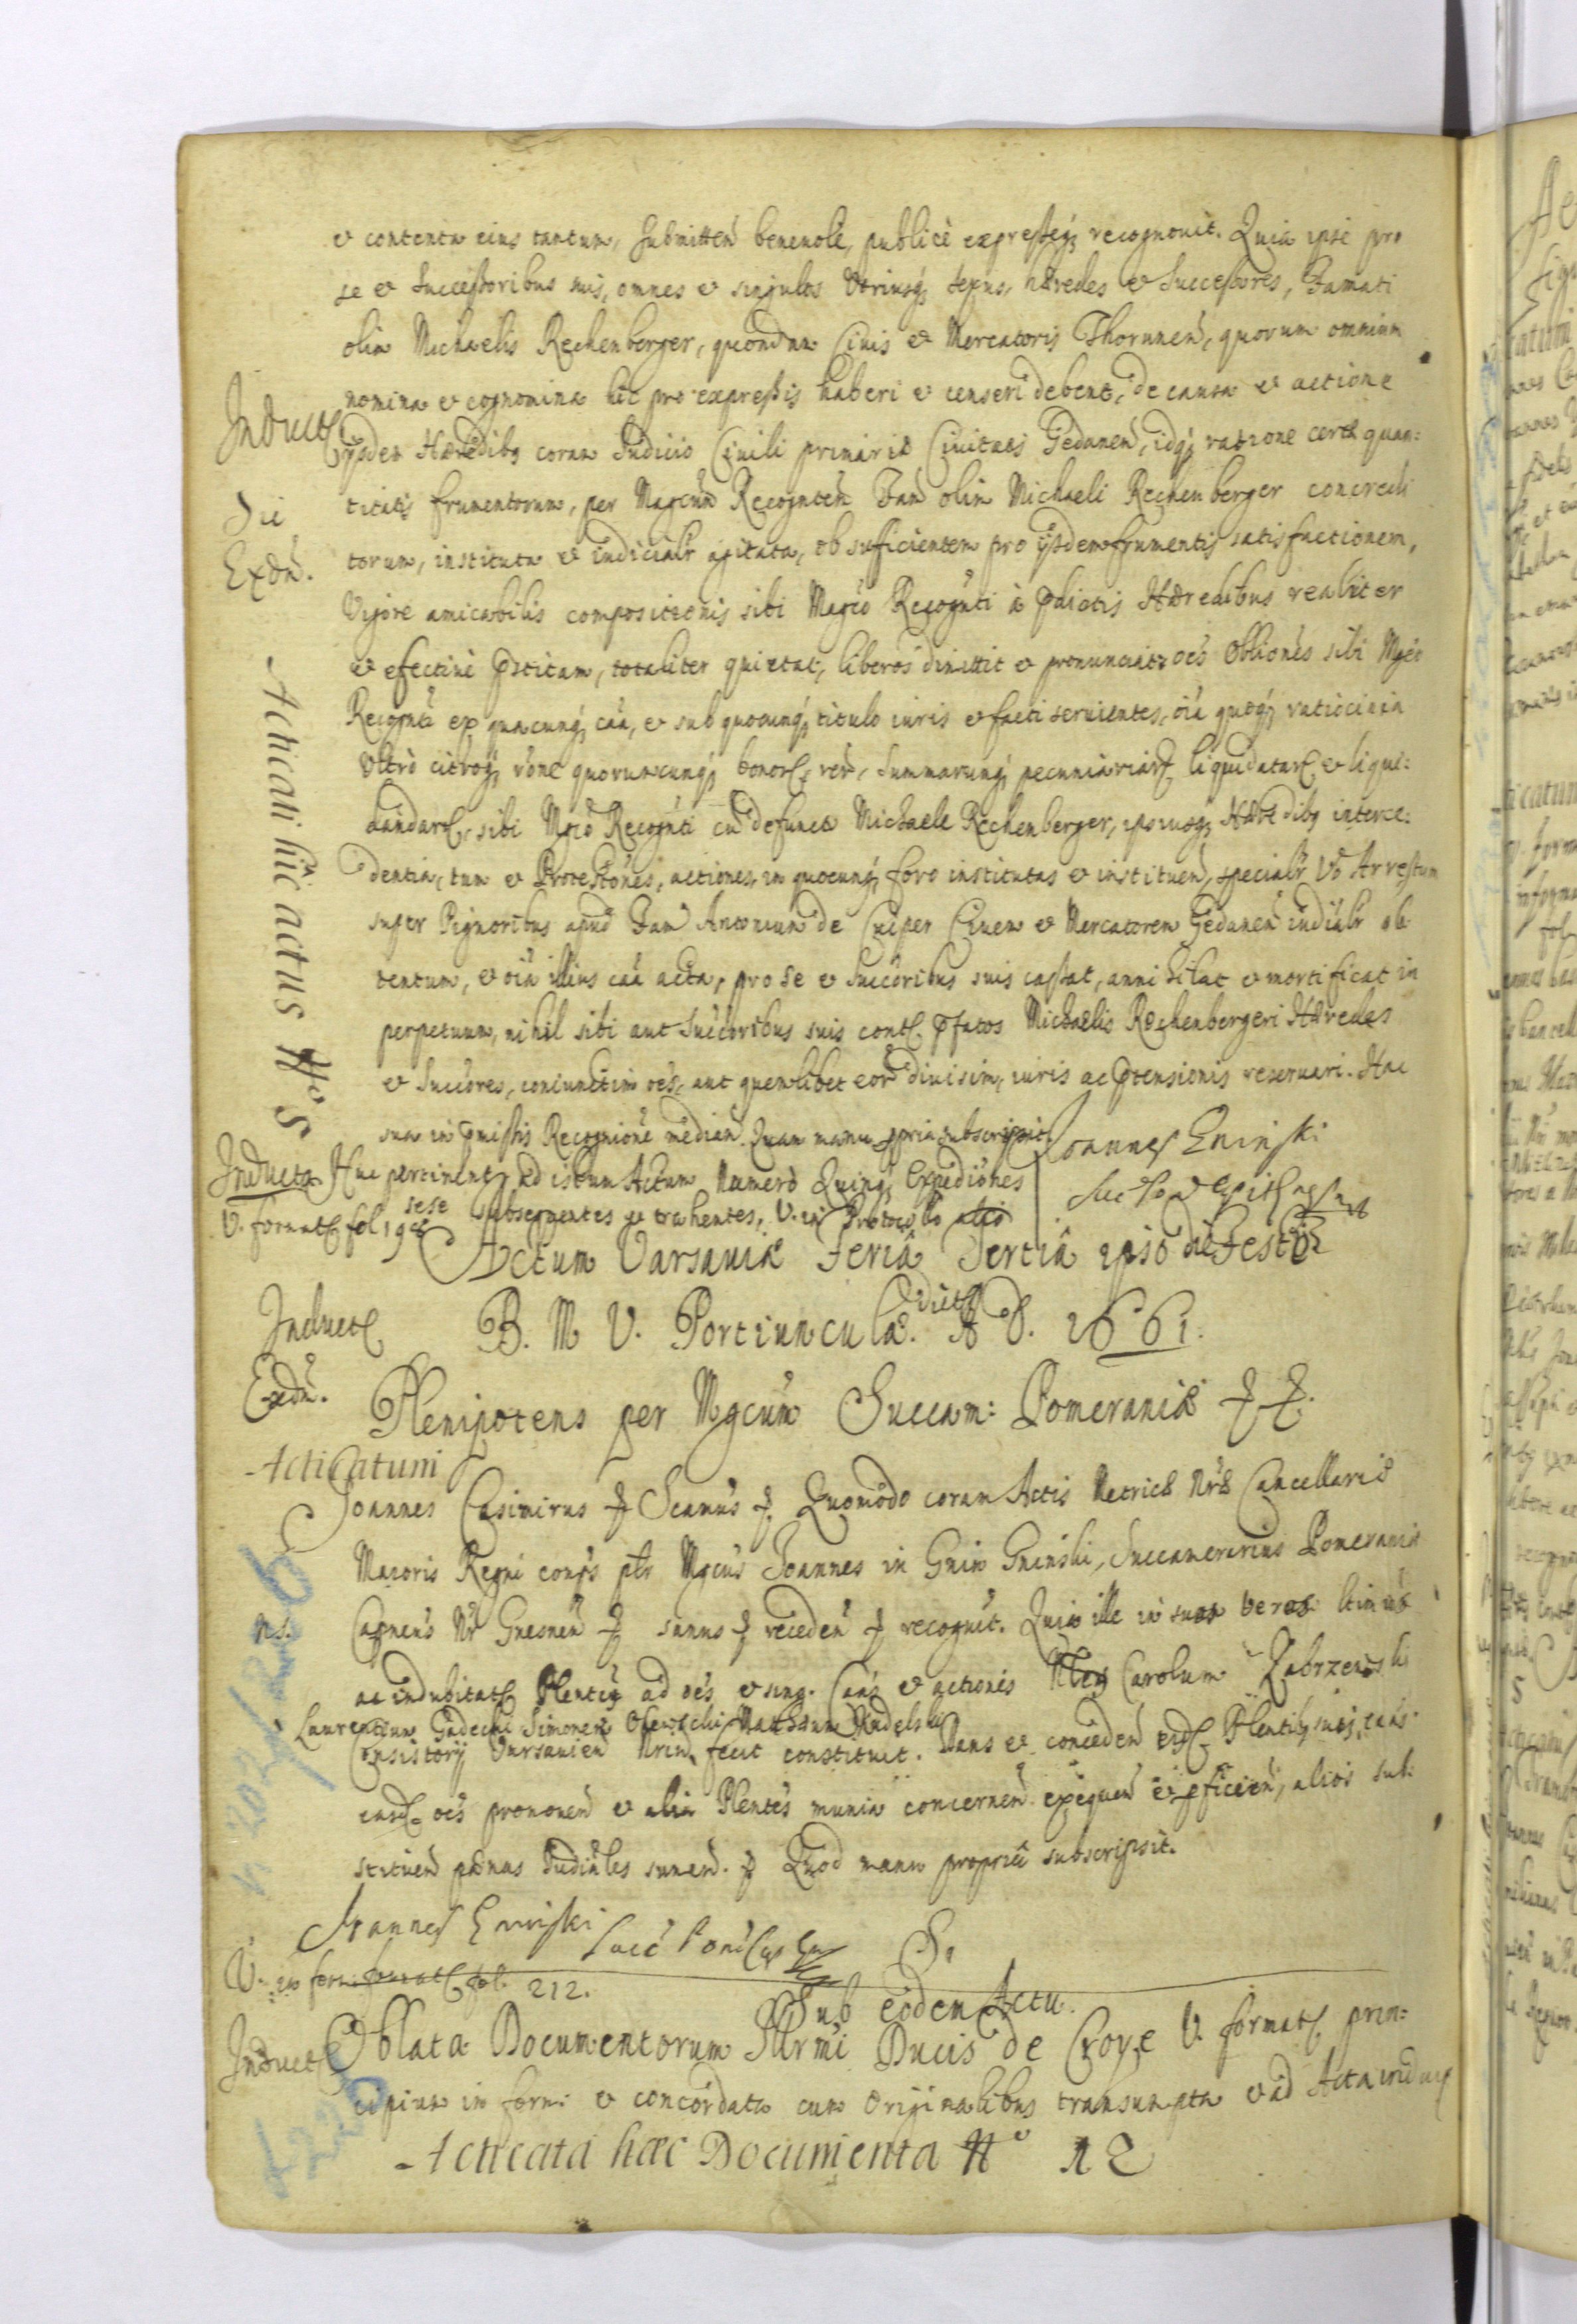 et contenta eius tantum, submitten benevolè, publicè expresseq recognovit. Quia ipse pro
se et Successoribus suis, omnes et singulos Utriusq sexus, hæredes et Successores, Famati
olim Michaelis Rechenberger, quondam Civis et Mercatoris Thorunen, quorum omnium
nomina et cognomina hic pro expressis haberi et censeri debent, de causa et actione
Induct
ijsdem Hæredibq coram Iudicio Civili primariæ Civitatis Gedanen, idq ratione certæ quan:
titatis frumentorum, per Magcum Recognten Fam olim Michaeli Rechenberger concredi
Die
Exdn.
torum, instituta et iudicialr agitata, ob sufficientem pro ijsdem frumentis satisfactionem,
Vigore amicabilis compositionis sibi Magco Recognti à pdictis Hæredibus realiter
et efective pstitam, totaliter quietat, liberos dimittit et pronunciat, oes Obliones sibi Mgco
Recognti ex quacunq caa, et sub quocunq titulo iuris et facti servientes, oia quoq ratiocinia
Ultro citroq rone quorumcunq bonor, rer, summarumq pecuniariar liquidatar et liqui:
dandar, sibi Mgco Recognti cu defuncto Michaele Rechenberger, ipsiusq Hæredibq interce:
dentia, tum et Protestiones, actiones, in quocunq foro institutas et instituen, specialr Vo Arrestum
super Pignoribus apud Fam Antonium de Cuiper Civem et Mercatorem Gedanen iudialr ob
tentum, et oia illius caa acta, pro se et Succoribus suis cassat, annihilat et mortificat in
perpetuum, nihil sibi aut Succoribus suis cont pfatos Michaelis Rechenbergeri Hæredes
et Succores, coniunctim oes, aut quemlibet eor divisim, iuris ac ptensionis reservari. Hac
sua in pmissis Recognione median. Quam manu ppria subscripsit
Acticati hic actus No 5
Joannes Gninski
Inducta
Huc pertinent ad istum Actum Numero Quinq Expediones
V. format fol 198
sese subsequentes et trahentes, V. in Protocollo
Actum Varsaviæ Feriâ Tertiâ ipso die Festo
Induct
B. M V. Portiuncula. dict A D. 1661.
Exdn.
Plenipotens per Mgcum Succam: Pomeraniæ
Acticatum
Joannes Casimirus Scamus Quomodo coram Actis Metricæ Nræ Cancellariæ
Maioris Regni conps ptr Mgcus Joannes in Gnin Gninski, Succamerarius Pomeraniæ
n.s.
Capneus Nr Gnesnen sanus receden recognit. Quia ille in suos veros ltimos
ac indubitat Plentes ad oes et sing. Caas et actiones Carolum Zabrzenski
Laurentium Gadecki Simonem Matthæum Rudelski
Consistorij Varsavien fecit constituit. Dans et conceden Plentibq suis, caas
easd oes promoven et alia Plentes munia concernen exequen et pficien, alios sub:
stituen pænas Iudiales sumen. Quod manu propriâ subscripsit.
Joannes Gninski
V. in form format fol. 212.
Sub eodem Actu.
Induct
Oblata Documentorum Illrmi Ducis de Croye V. format prin:
cipium in form: et concordata cum originalibus transumpta et ad Acta induct
Acticata hæc Documenta No 12